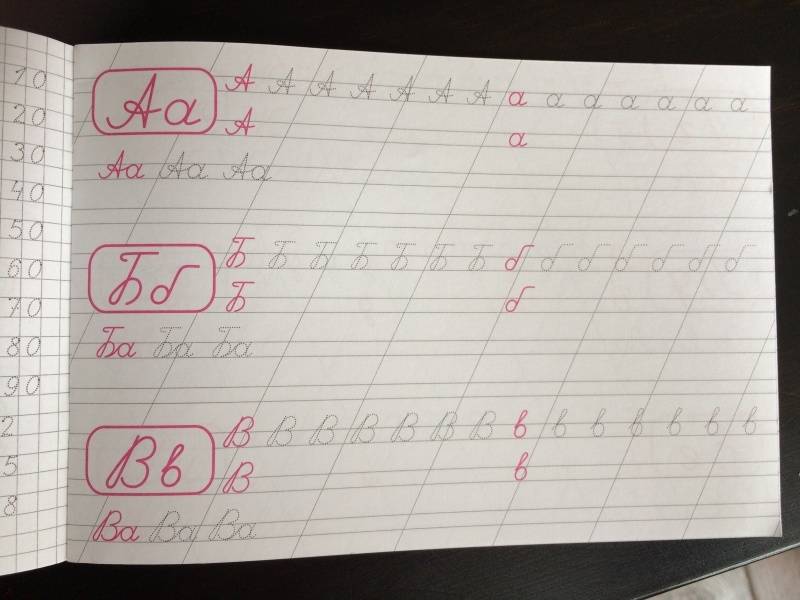 10
20
30
40
50
60
70
80
90
2
5
8
Аа
А А А А А А А а а а а а а а
А а
Аа Аа Аа
Бб
Б Б Б Б Б Б Б б б б б б б б
Б б
Ба Ба Ба
Вв
В В В В В В В в в в в в в в
В в
Ва Ва Ва